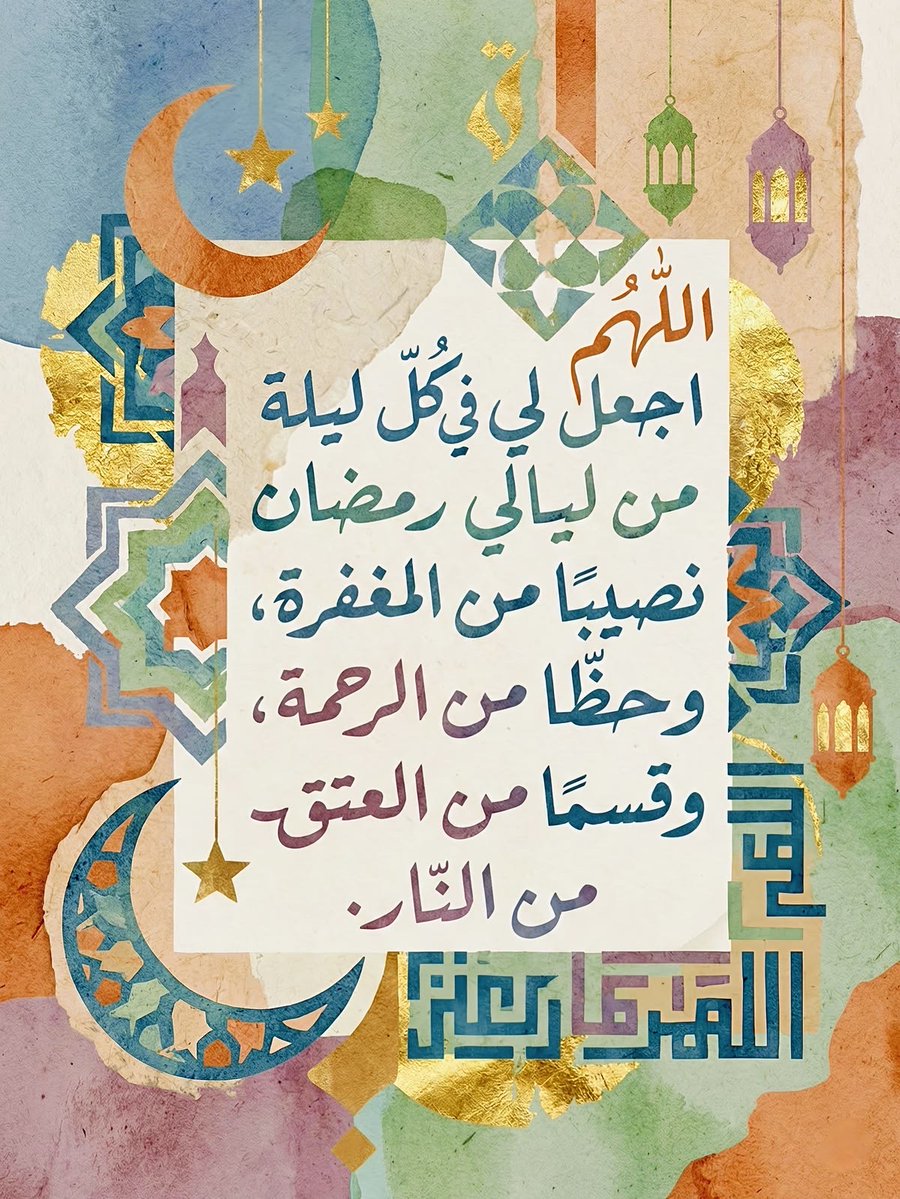 اللّٰهُم
اجعل لي في كُلّ ليلة
من ليالي رمضان
نصيبًا من المغفرة،
وحظًّا من الرحمة،
وقسمًا من العتق
من النّار.